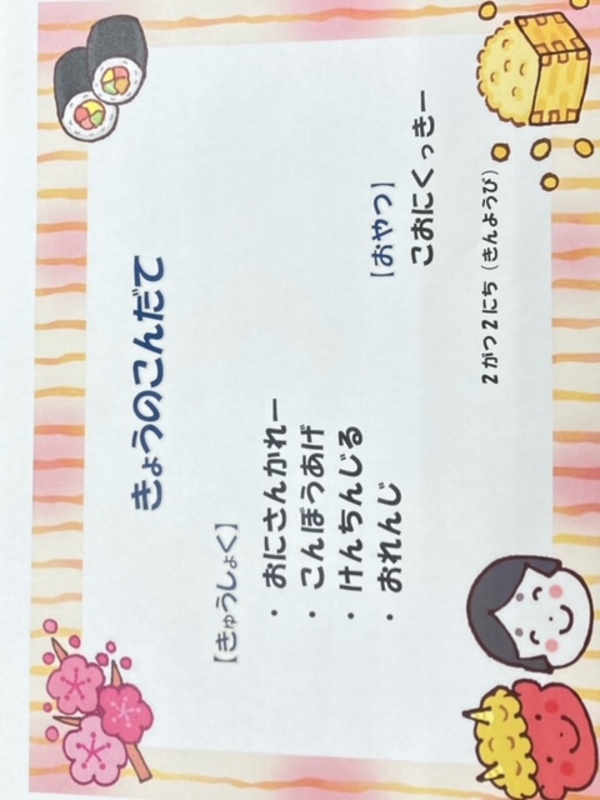 きょうのこんだて
【きゅうしょく】
・おにさんかれー
・こんぼうあげ
・けんちんじる
・おれんじ
【おやつ】
こおにくっきー
2がつ2にち（きんようび）